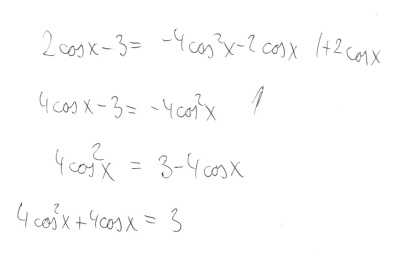 2cosx-3= -4cos²x-2cosx /+2cosx
4cosx-3= -4cos²x
4cos²x = 3-4cosx
4cos²x+4cosx = 3